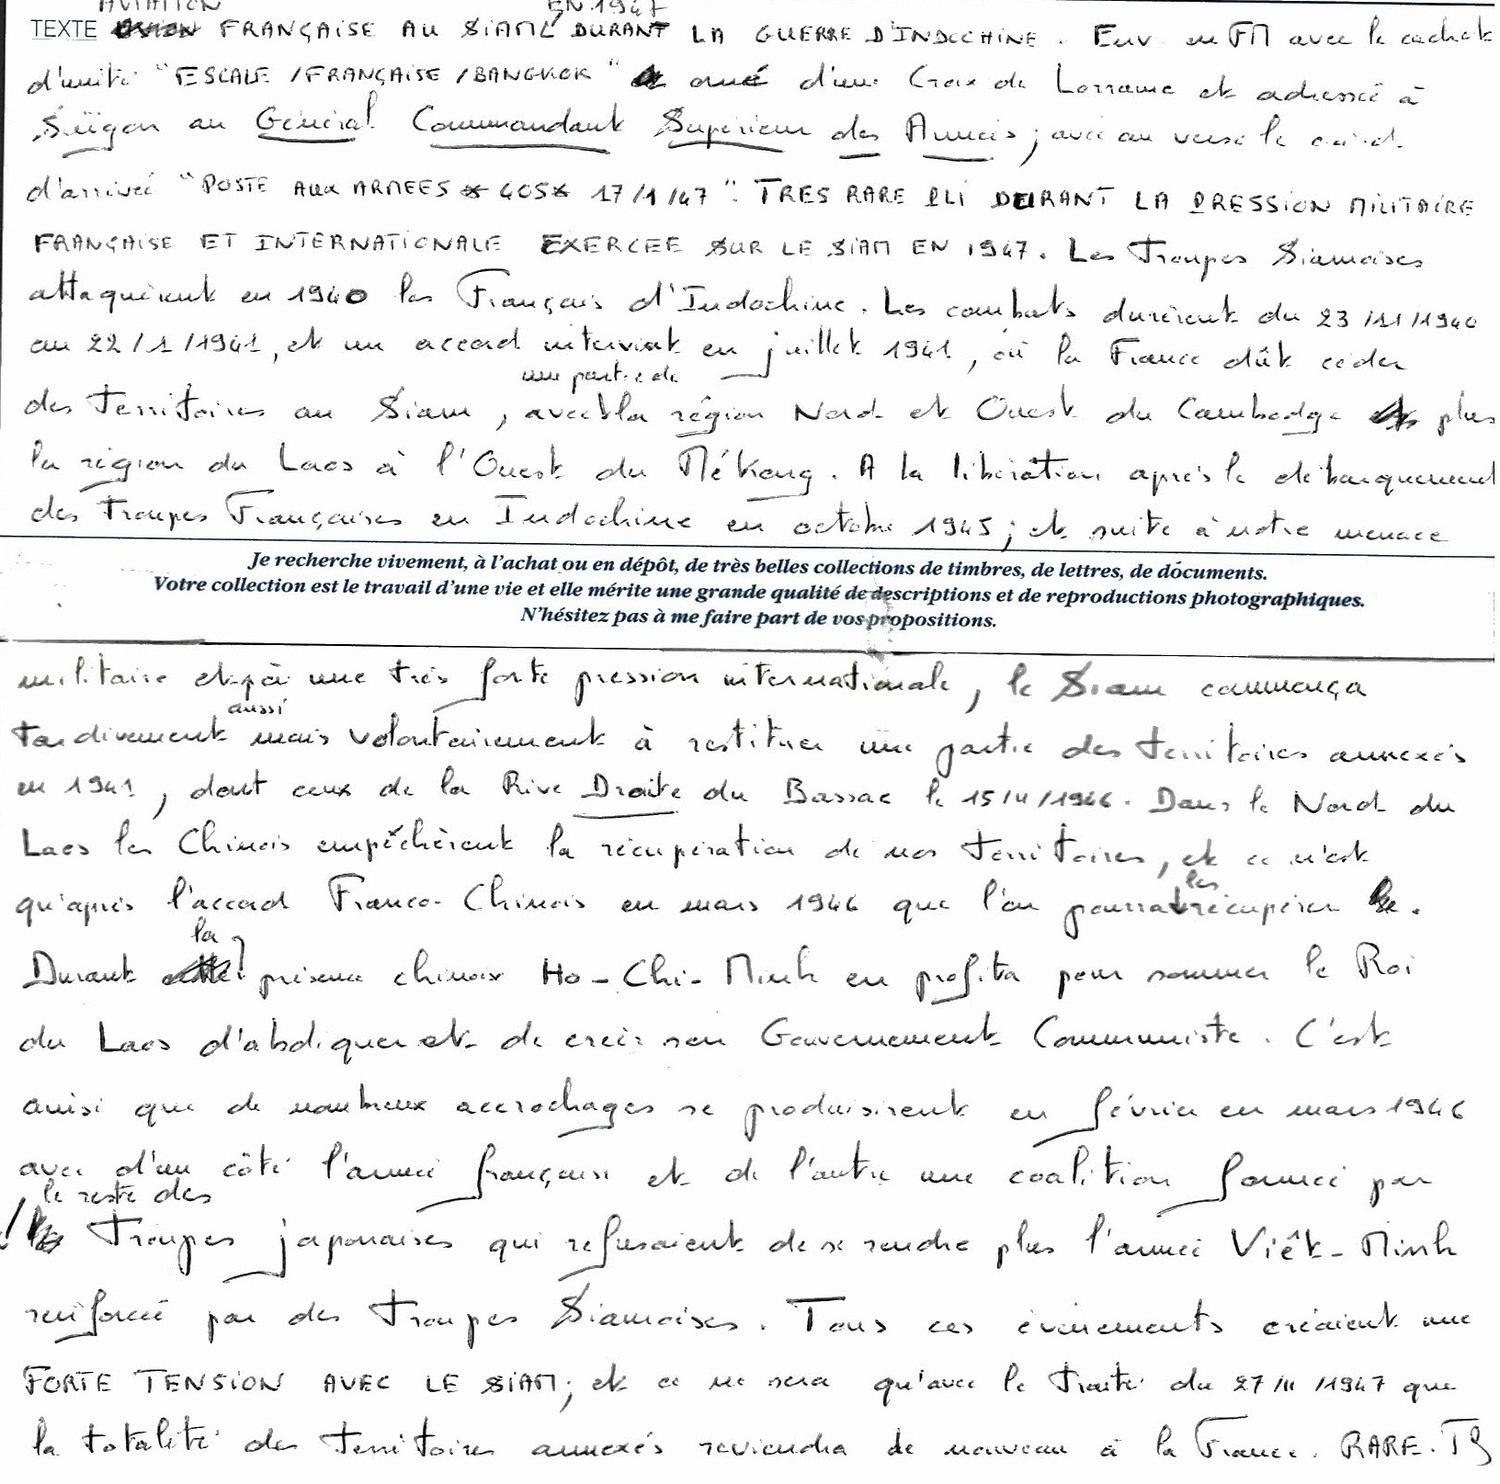 AVIATION EN 1947
TEXTE FRANÇAISE AU SIAM DURANT LA GUERRE D'INDOCHINE. Env. en FM avec le cachet
d'unité "ESCALE / FRANÇAISE / BANGKOK" orné d'une Croix de Lorraine et adressée à
Saïgon au Général Commandant Supérieur des Armées ; avec au verso le cachet
d'arrivée "POSTE AUX ARMEES * 405 * 17/1/47". TRES RARE PLI DURANT LA PRESSION MILITAIRE
FRANÇAISE ET INTERNATIONALE EXERCEE SUR LE SIAM EN 1947. Les Troupes Siamoises
attaquèrent en 1940 les Français d'Indochine. Les combats durèrent du 23/11/1940
au 22/1/1941, et un accord intervint en juillet 1941, où la France dût céder
une partie de
des Territoires au Siam, avec la région Nord et Ouest du Cambodge plus
la région du Laos à l'Ouest du Mékong. A la libération après le débarquement
des Troupes Françaises en Indochine en octobre 1945 ; et suite à notre menace
Je recherche vivement, à l'achat ou en dépôt, de très belles collections de timbres, de lettres, de documents.
Votre collection est le travail d'une vie et elle mérite une grande qualité de descriptions et de reproductions photographiques.
N'hésitez pas à me faire part de vos propositions.
militaire et à une très forte pression internationale, le Siam commença
aussi
tardivement mais volontairement à restituer une partie des territoires annexés
en 1941, dont ceux de la Rive Droite du Bassac le 15/11/1946. Dans le Nord du
Laos les Chinois empêchèrent la récupération de nos Territoires, et ce n'est
les
qu'après l'accord Franco-Chinois en mars 1946 que l'on pourra récupérer.
la
Durant présence chinoise Ho-Chi-Minh en profita pour sommer le Roi
du Laos d'abdiquer et de créer son Gouvernement Communiste. C'est
ainsi que de nombreux accrochages se produisirent en février en mars 1946
avec d'un côté l'armée française et de l'autre une coalition formée par
le reste des
Troupes japonaises qui refusaient de se rendre plus l'armée Viêt-Minh
renforcée par des Troupes Siamoises. Tous ces évènements créaient une
FORTE TENSION AVEC LE SIAM ; et ce ne sera qu'avec le Traité du 27/11/1947 que
la totalité des Territoires annexés reviendra de nouveau à la France. RARE. TB